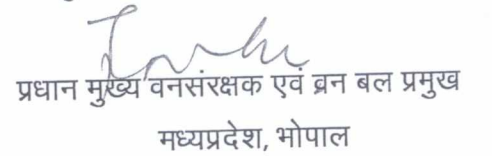 प्रधान मुख्य वनसंरक्षक एवं वन बल प्रमुख
मध्यप्रदेश, भोपाल